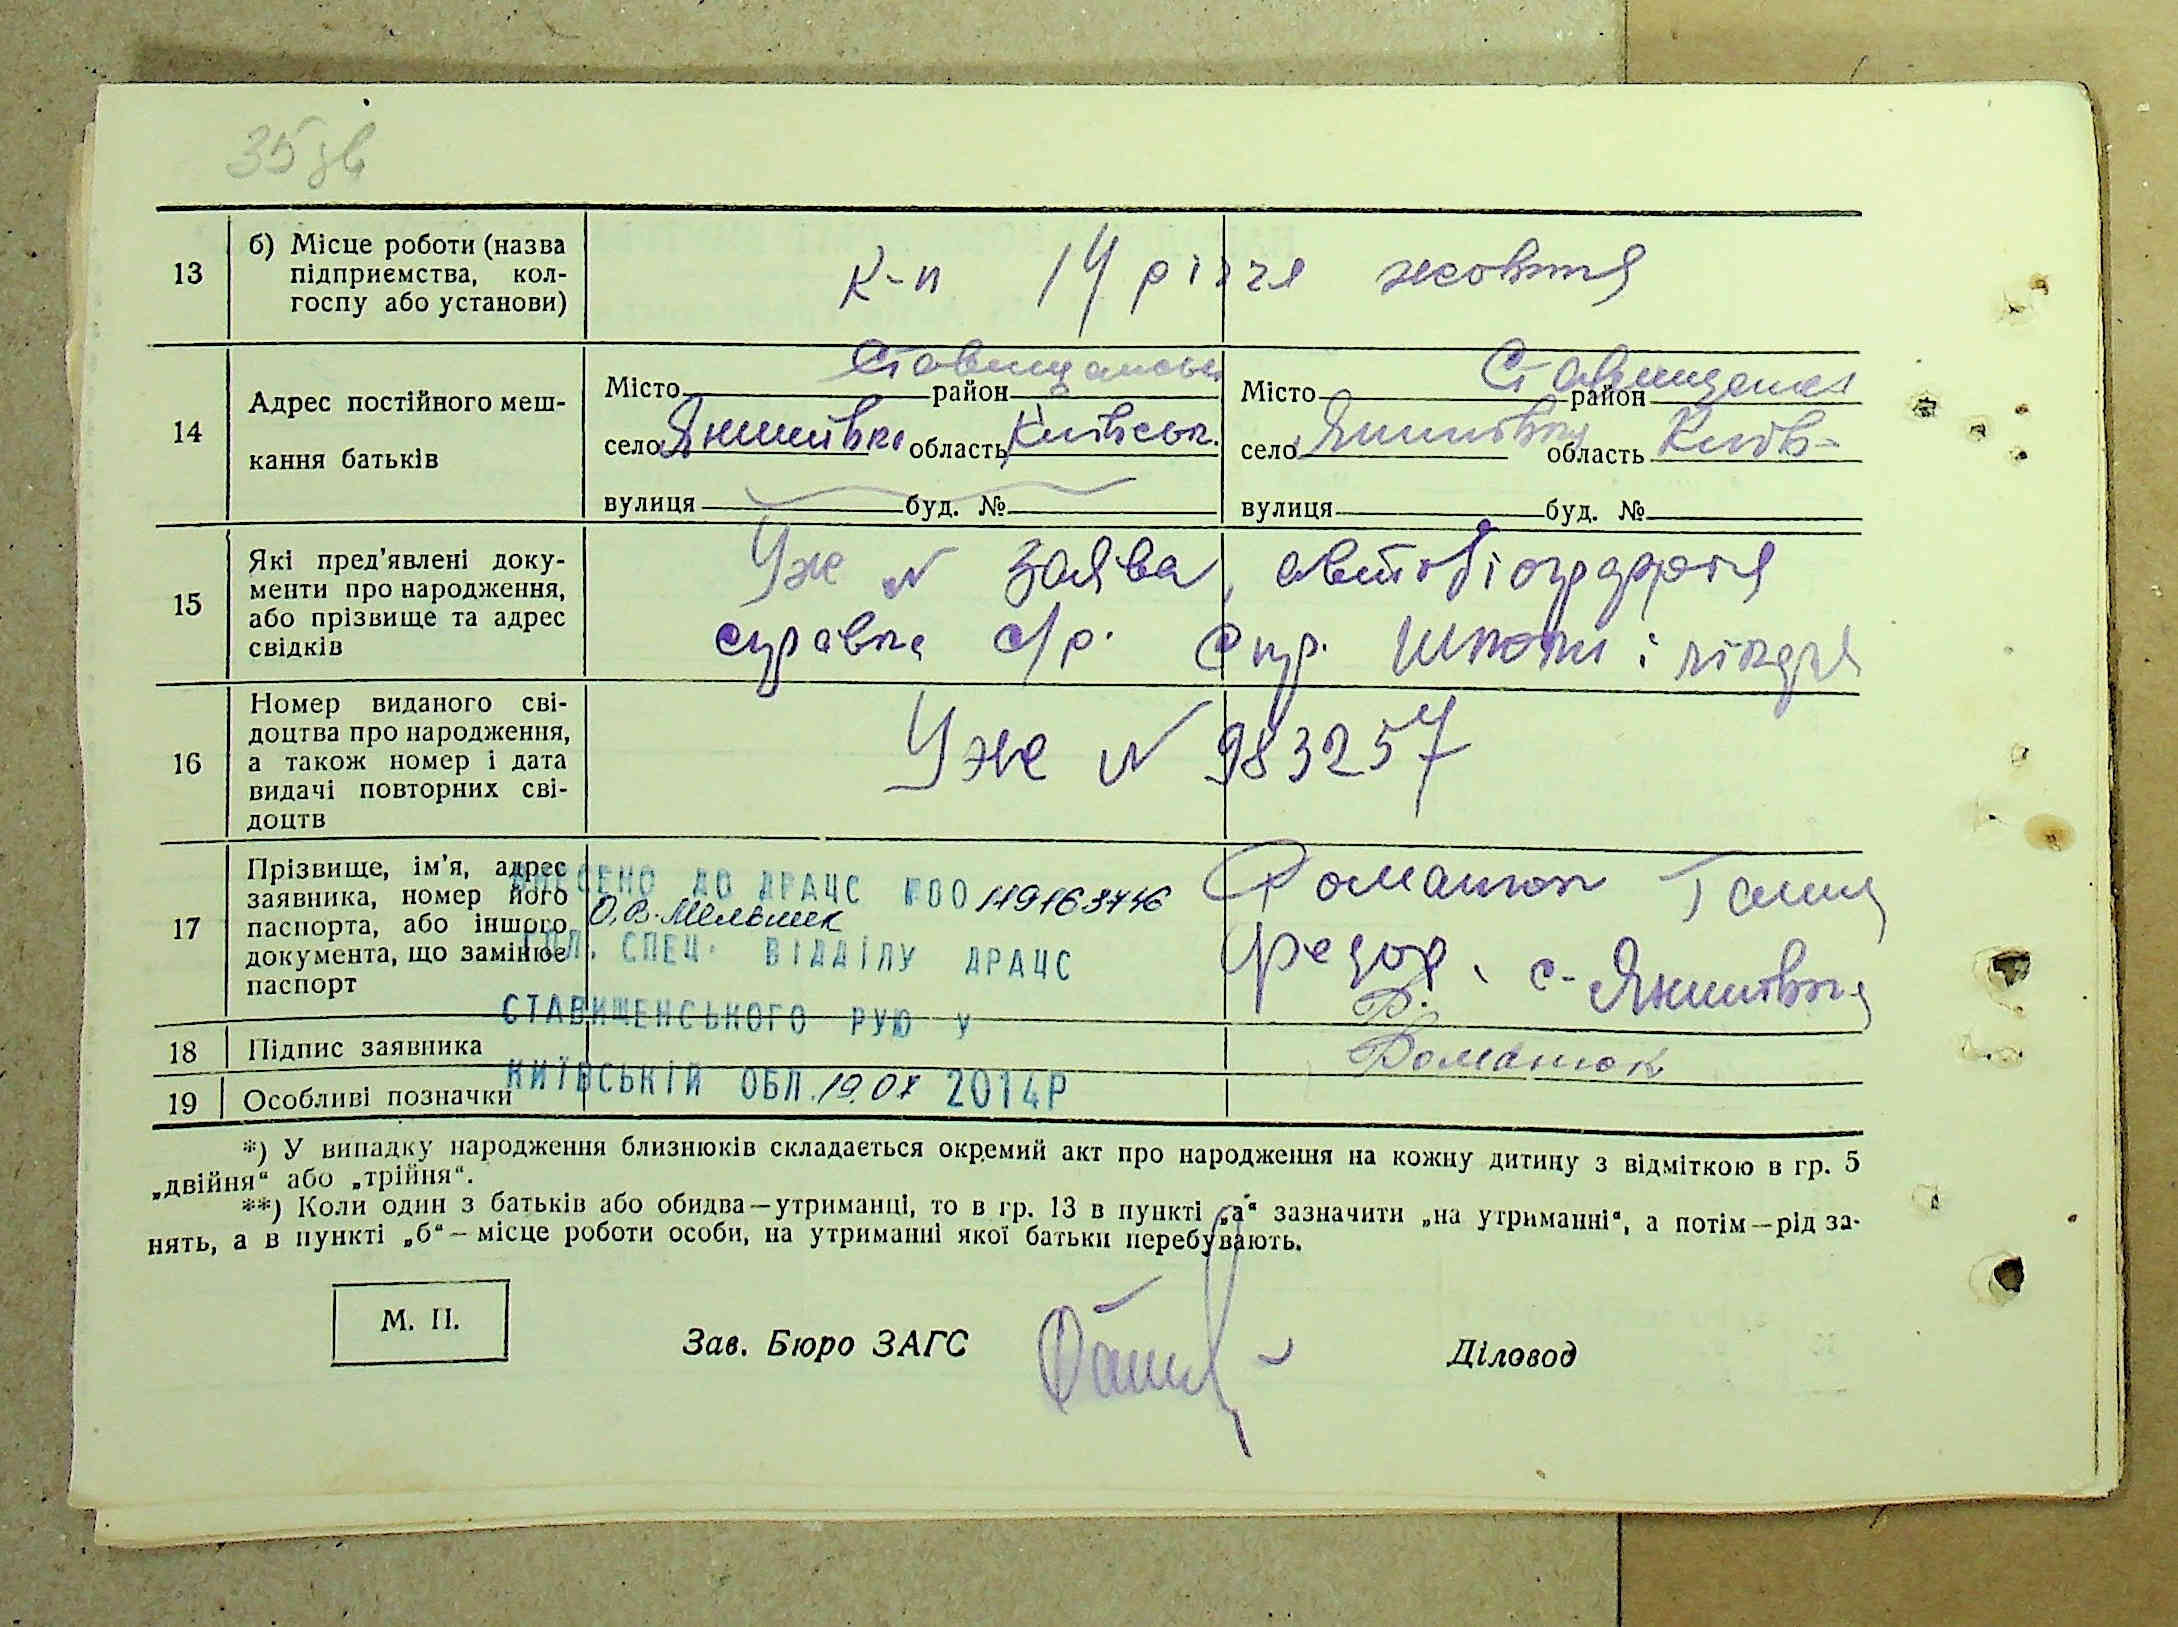 35 зв
13
б) Місце роботи (назва
підприємства, кол-
госпу або установи)
к-п 14 річчя жовтня
14
Адрес постійного меш-
кання батьків
Місто район Ставищанськ
село Янишівка область Київськ.
вулиця буд. №
Місто район Ставищанськ
село Янишівка область Київ-
вулиця буд. №
15
Які пред'явлені доку-
менти про народження,
або прізвище та адрес
свідків
Уже № заява, автобіографія
справка с/р. спр. школи і лікаря
16
Номер виданого сві-
доцтва про народження,
а також номер і дата
видачі повторних сві-
доцтв
Уже № 983257
17
Прізвище, ім'я, адрес
заявника, номер його
паспорта, або іншого
документа, що замінює
паспорт
Романюк Ганна
Федор. с. Янишівка
ВНЕСЕНО ДО ДРАЦС №00119163446
О.В. Мельник
ГОЛ. СПЕЦ. ВІДДІЛУ ДРАЦС
СТАВИЩЕНСЬКОГО РУЮ У
КИЇВСЬКІЙ ОБЛ. 19.07 2014Р
18
Підпис заявника
Романюк
19
Особливі позначки
*) У випадку народження близнюків складається окремий акт про народження на кожну дитину з відміткою в гр. 5
„двійня“ або „трійня“.
**) Коли один з батьків або обидва—утриманці, то в гр. 13 в пункті „а“ зазначити „на утриманні“, а потім—рід за-
нять, а в пункті „б“—місце роботи особи, на утриманні якої батьки перебувають.
М. П.
Зав. Бюро ЗАГС
Діловод